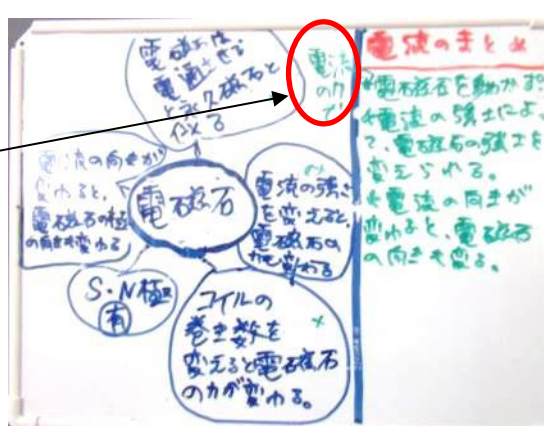 電磁石は、
電通させる
と永久磁石と
似る
電流
の力
で
電流の向きが
変わると、
電磁石の極
の向きも変わる
電磁石
電流の強さ
を変えると、
電磁石の
力も変わる
S・N極
有
コイルの
巻き数を
変えると電磁石
の力が変わる。
電流のまとめ
電磁石を動かす。
電流の強さによっ
て、電磁石の強さを
変えられる。
電流の向きが
変わると、電磁石
の向きも変る。